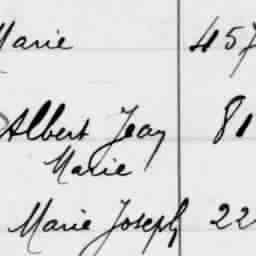 Marie 457
Albert Jean 81
Marie
Marie Joseph 22